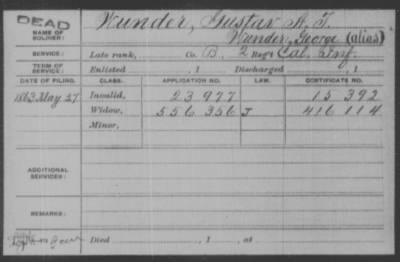 DEAD
Wunder, Gustav A. T.
NAME OF SOLDIER:
Wunder, George (alias)
SERVICE: Late rank, Co. B, 2 Reg't Cal. Inf.
TERM OF SERVICE: Enlisted , 1 Discharged , 1
DATE OF FILING. CLASS. APPLICATION NO. LAW. CERTIFICATE NO.
1863 May 27 Invalid, 23977 15392
Widow, 556356 J 416114
Minor,
ADDITIONAL SERVICES:
REMARKS:
Died , 1 , at